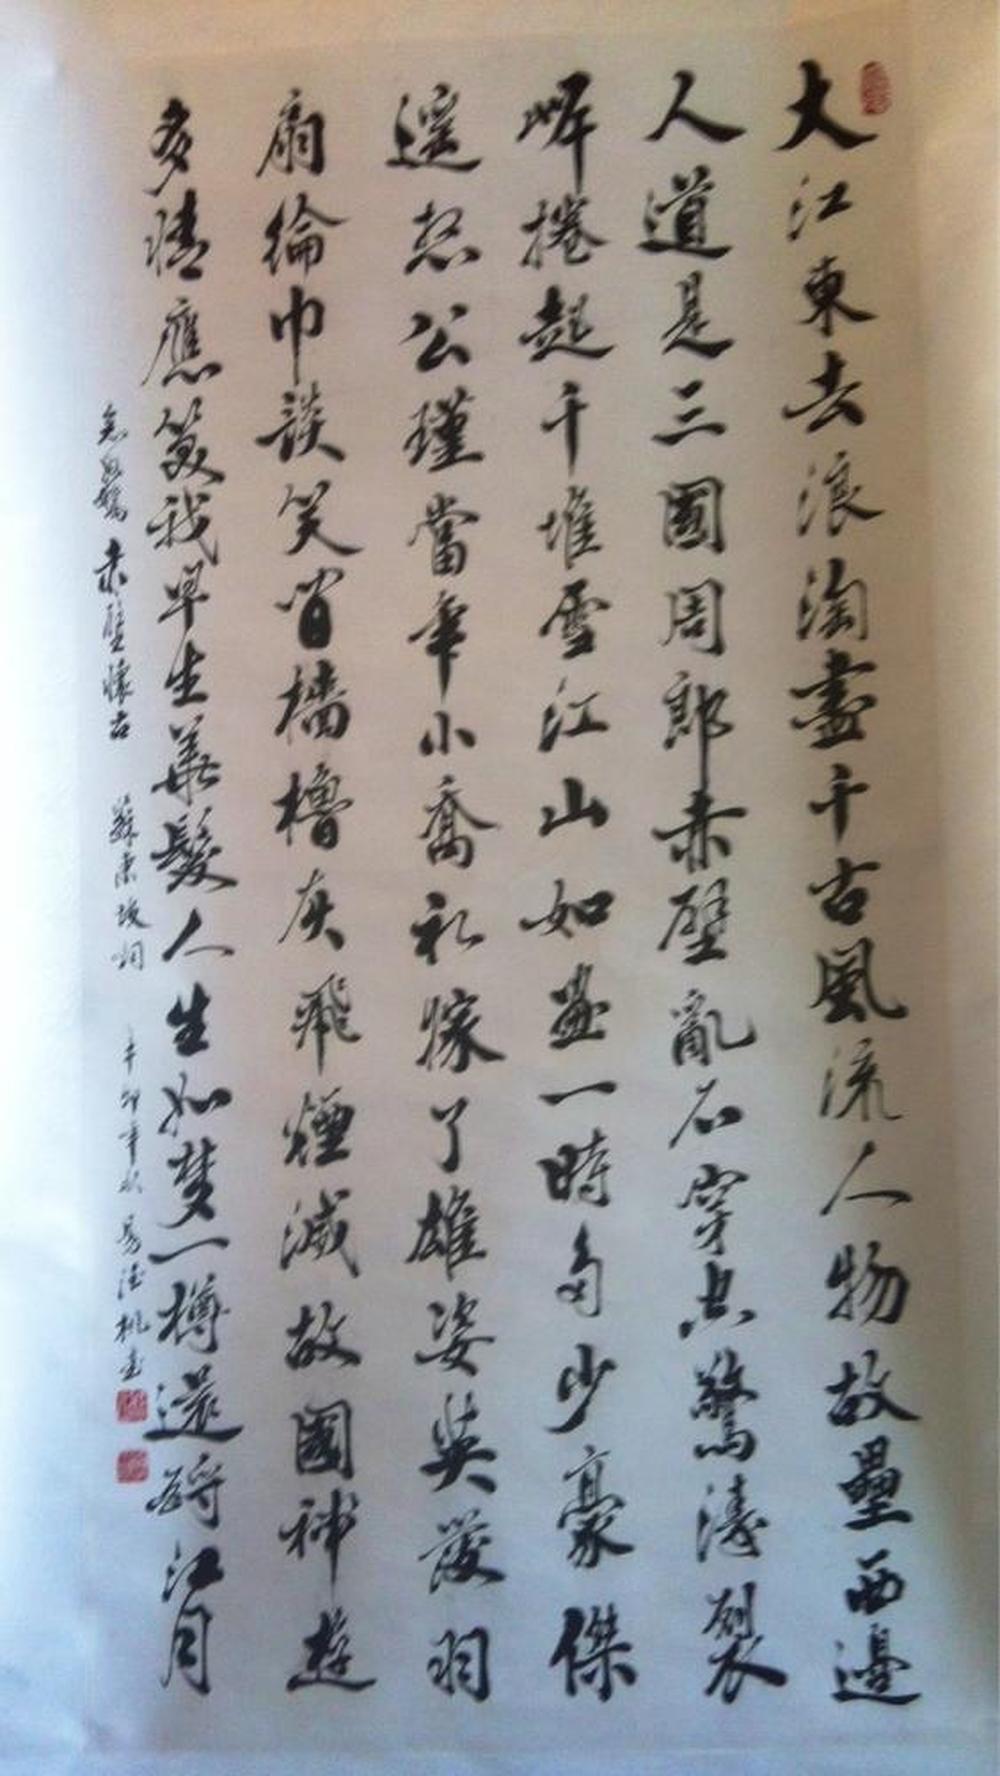 大江東去浪淘盡千古風流人物故壘西邊
人道是三國周郎赤壁亂石穿空驚濤裂
岸捲起千堆雪江山如畫一時多少豪傑
遙想公瑾當年小喬初嫁了雄姿英發羽
扇綸巾談笑間檣櫓灰飛煙滅故國神遊
多情應笑我早生華髮人生如夢一樽還酹江月
念奴嬌 赤壁懷古 蘇東坡詞 辛卯年秋 書